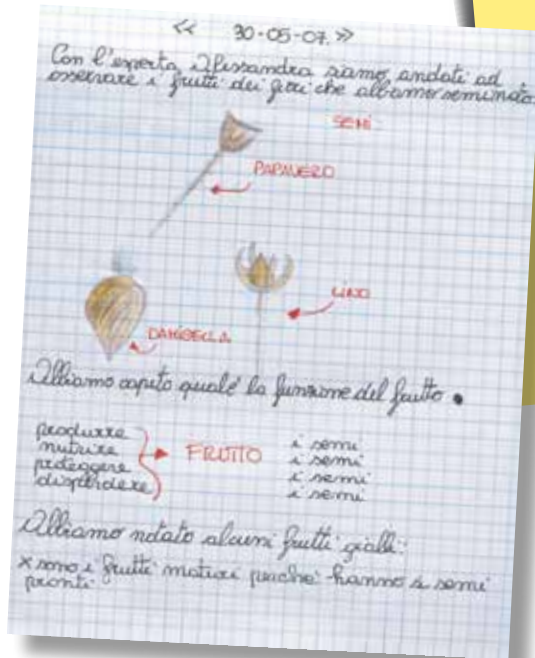 << 30-05-07. >>
Con l'esperta Alessandra siamo andati ad
osservare i frutti dei fiori che abbiamo seminato.
SEMI
PAPAVERO
LINO
DAMIGELLA
Abbiamo capito qual'è la funzione del frutto.
produrre i semi
nutrire FRUTTO i semi
proteggere i semi
disperdere i semi
Abbiamo notato alcuni frutti gialli:
x sono i frutti maturi perché hanno i semi
pronti